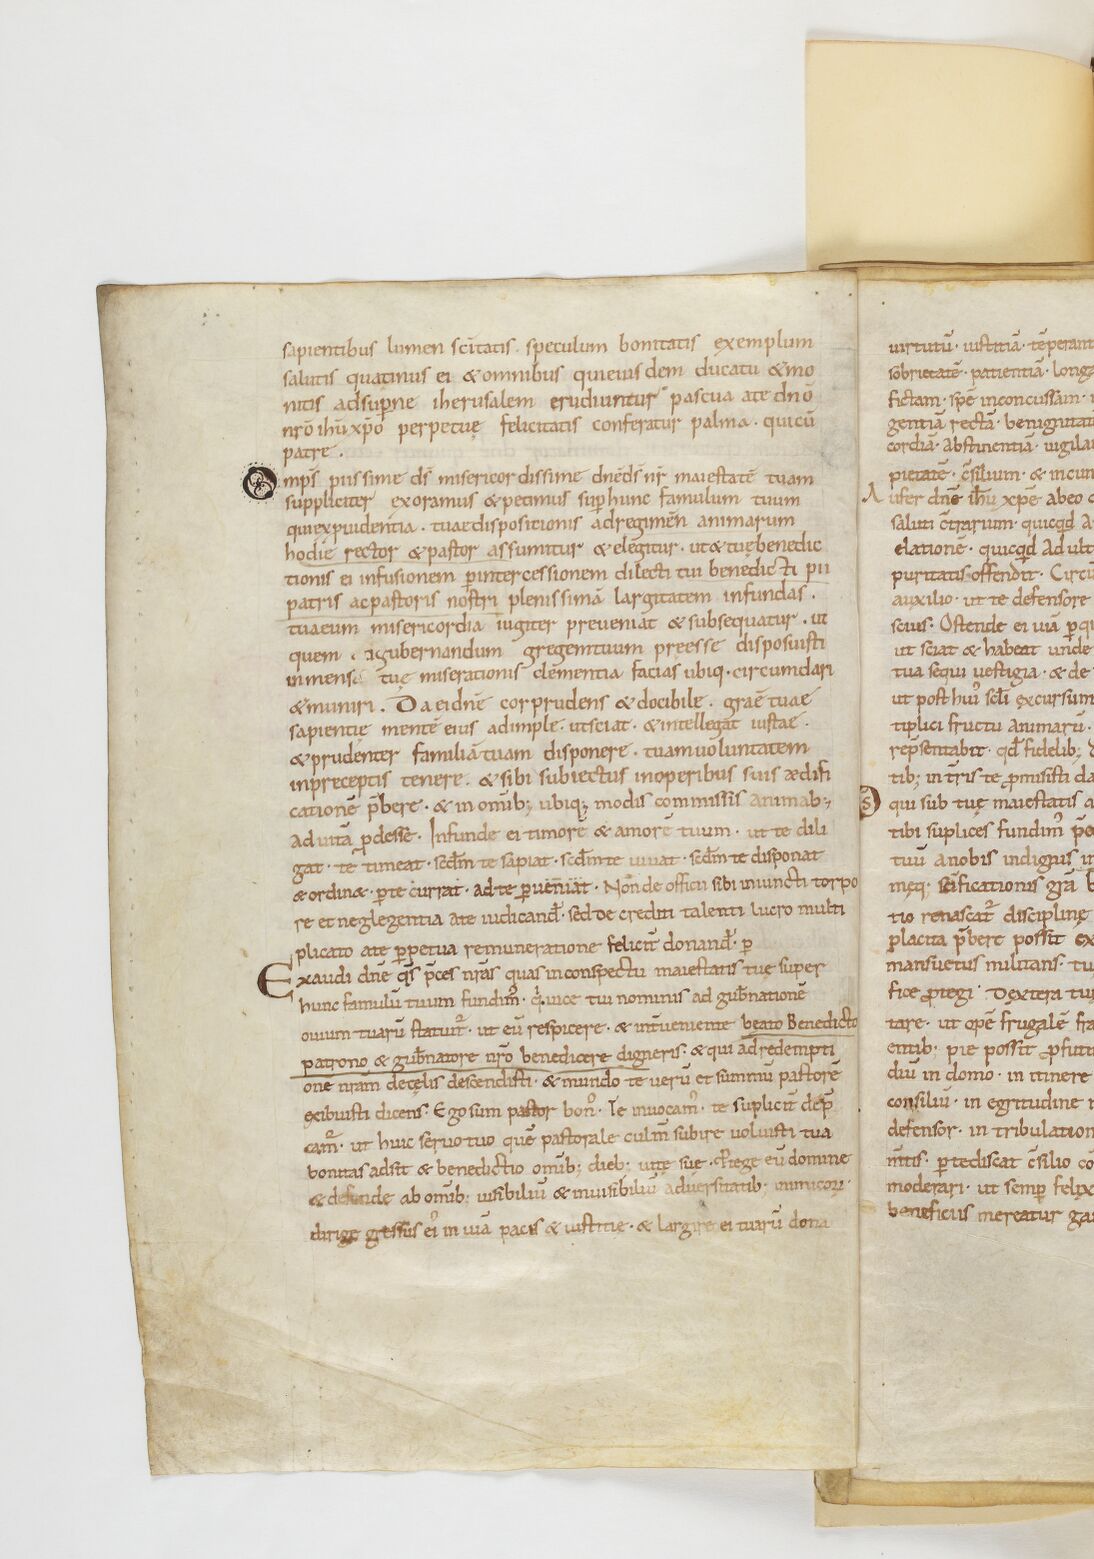 sapientibus lumen scītatis · speculum bonitatis exemplum
salutis quatinus ei &omnibus quieiusdem ducatu &mo
nitis adsup̄ne iherusalem erudiuntur pascua ate dnō
nrō ihūxp̄o perpetuę felicitatis conferatur palma · quicū
patre ·
Omp̄s piissime dī misericordissime dnēds nr̄ maiestatē tuam
suppliciter exoramus &petimus sup̄hunc famulum tuum
quiexp̄uidentia · tuaedispositionis adregimēn animarum
hodie rector &pastor assumitur &elegitur · ut&tuębenedic
tionis ei infusionem p̄intercessionem dilecti tui benedicti pii
patris acpastoris nostri plenissimā largitatem infundas ·
tuaeum misericordia iugiter preueniat &subsequatur · ut
quem · adgubernandum gregemtuum preesse disposuisti
inmensa tuę miserationis clēmentia facias ubiq · circumdari
&muniri · Da ei dnē cor prudens &docibile · graē tuae
sapientię mentē eius adimple · utsciat · &intellegāt iustae ·
&prudenter familiā tuam disponere · tuamuoluntatem
inpreceptis tenere · &sibi subiectus inoperibus suis ædifi
cationē p̄bere · & in omīb; ubiq; modis commissīs animab;
ad uitā p̄desse · Infunde ei timorē & amorē tuum · ut te dili
gat · te timeat · scd̄m te sapiat · scd̄mte uiuat · scd̄m te disponat
&ordinæ · p̄te currat · ad te p̄ueniat · Non de officii sibi iniuncti torpo
re et neglegentia ate iudicand̄ · sed de crediti talenti lucro multi
plicato ate p̄petua remuneratione felicit̄ donand̄ · p̄
Exaudi dnē qs̄ p̄ces nrās quas inconspectu maiestatis tuę super
hunc famulū tuum fundim̄ · q̄ uice tui nominis ad gub̄nationē
ouium tuarū statuit̄ · ut eū respicere · & int̄ueniente beato Benedicto
patrono & gub̄natore nr̄o benedicere digneris · & qui ad redempti
onē nrām decęlis descendisti · & mundo te uerū et summū pastorē
exibuisti dicens · Ego sum pastor bon̄ · Te inuocam̄ · te suplicit̄ dep̄
cam̄ · ut huic seruo tuo quē pastorale culm̄ subire uoluisti tua
bonitas adsit & benedictio omīb; dieb; uitę suę · Rege eū domine
& defende ab omīb; uisibiliū & inuisibiliū aduersitatib; inimicor̄ ·
dirige gressus ei in uiā pacis & iustitię · & largire ei tuarū dona
uirtutū · iustitiā · tēperant
sobrietatē · patientiā · long
fictam · spē inconcussam ·
gentiā rectā · benignitat
cordiā · abstinentiā · uigila
pietatē · c̄silium · & incun
Aufer dnē ihū xp̄e abeo
saluti c̄trarum · quicqd
elationē · quicqd adult
puritatis offendit · Circū
auxilio · ut te defensore
scius · Ostende ei uiā p̄q
ut sciat & habeat unde
tua sequi uestigia · & de
ut post hui sc̄li excursum
tiplici fructu animarū ·
rep̄sentabit · qd̄ fidelib;
tib; in tr̄is te p̄misisti da
Ds qui sub tuę maiestatis
tibi suplices fundim̄ p̄
tuū anobis indignis
meq; sc̄ificationis grā
tio renascat̄ disciplinę
placita p̄bere possit ex
mansuetus militans · tu
fice p̄tegi · Dextera tu
tare · ut opē frugalē fra
entib; pie possit p̄futu
diū in domo · in itinere
consiliū · in egritudine
defensor · in tribulation
m̄tis · p̄te discat c̄silio
moderari · ut semp̄ felix
beneficiis mereatur